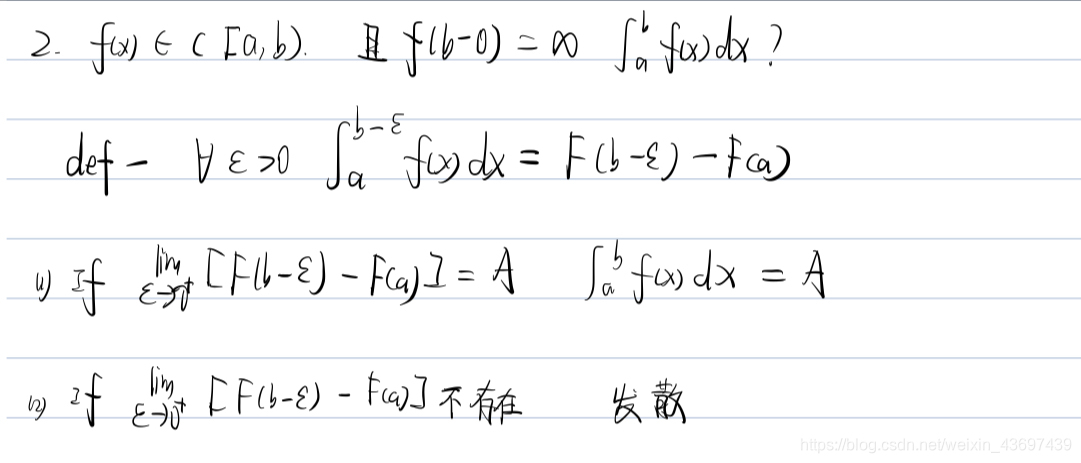 2. f(x) ∈ C [a, b). 且 f(b-0) = ∞ ∫_a^b f(x) dx ?
def - ∀ ε>0 ∫_a^{b-ε} f(x) dx = F(b-ε) - F(a)
(1) If lim_{ε→0⁺} [F(b-ε) - F(a)] = A ∫_a^b f(x) dx = A
(2) If lim_{ε→0⁺} [F(b-ε) - F(a)] 不存在 发散
https://blog.csdn.net/weixin_43697439